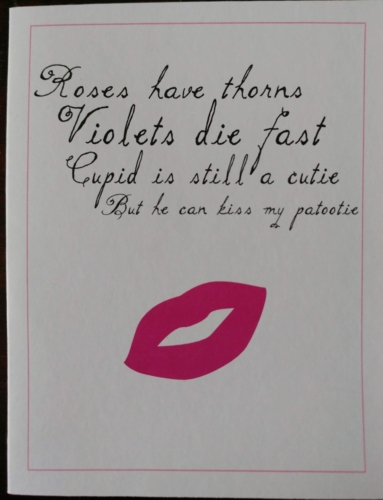 Roses have thorns
Violets die fast
Cupid is still a cutie
But he can kiss my patootie